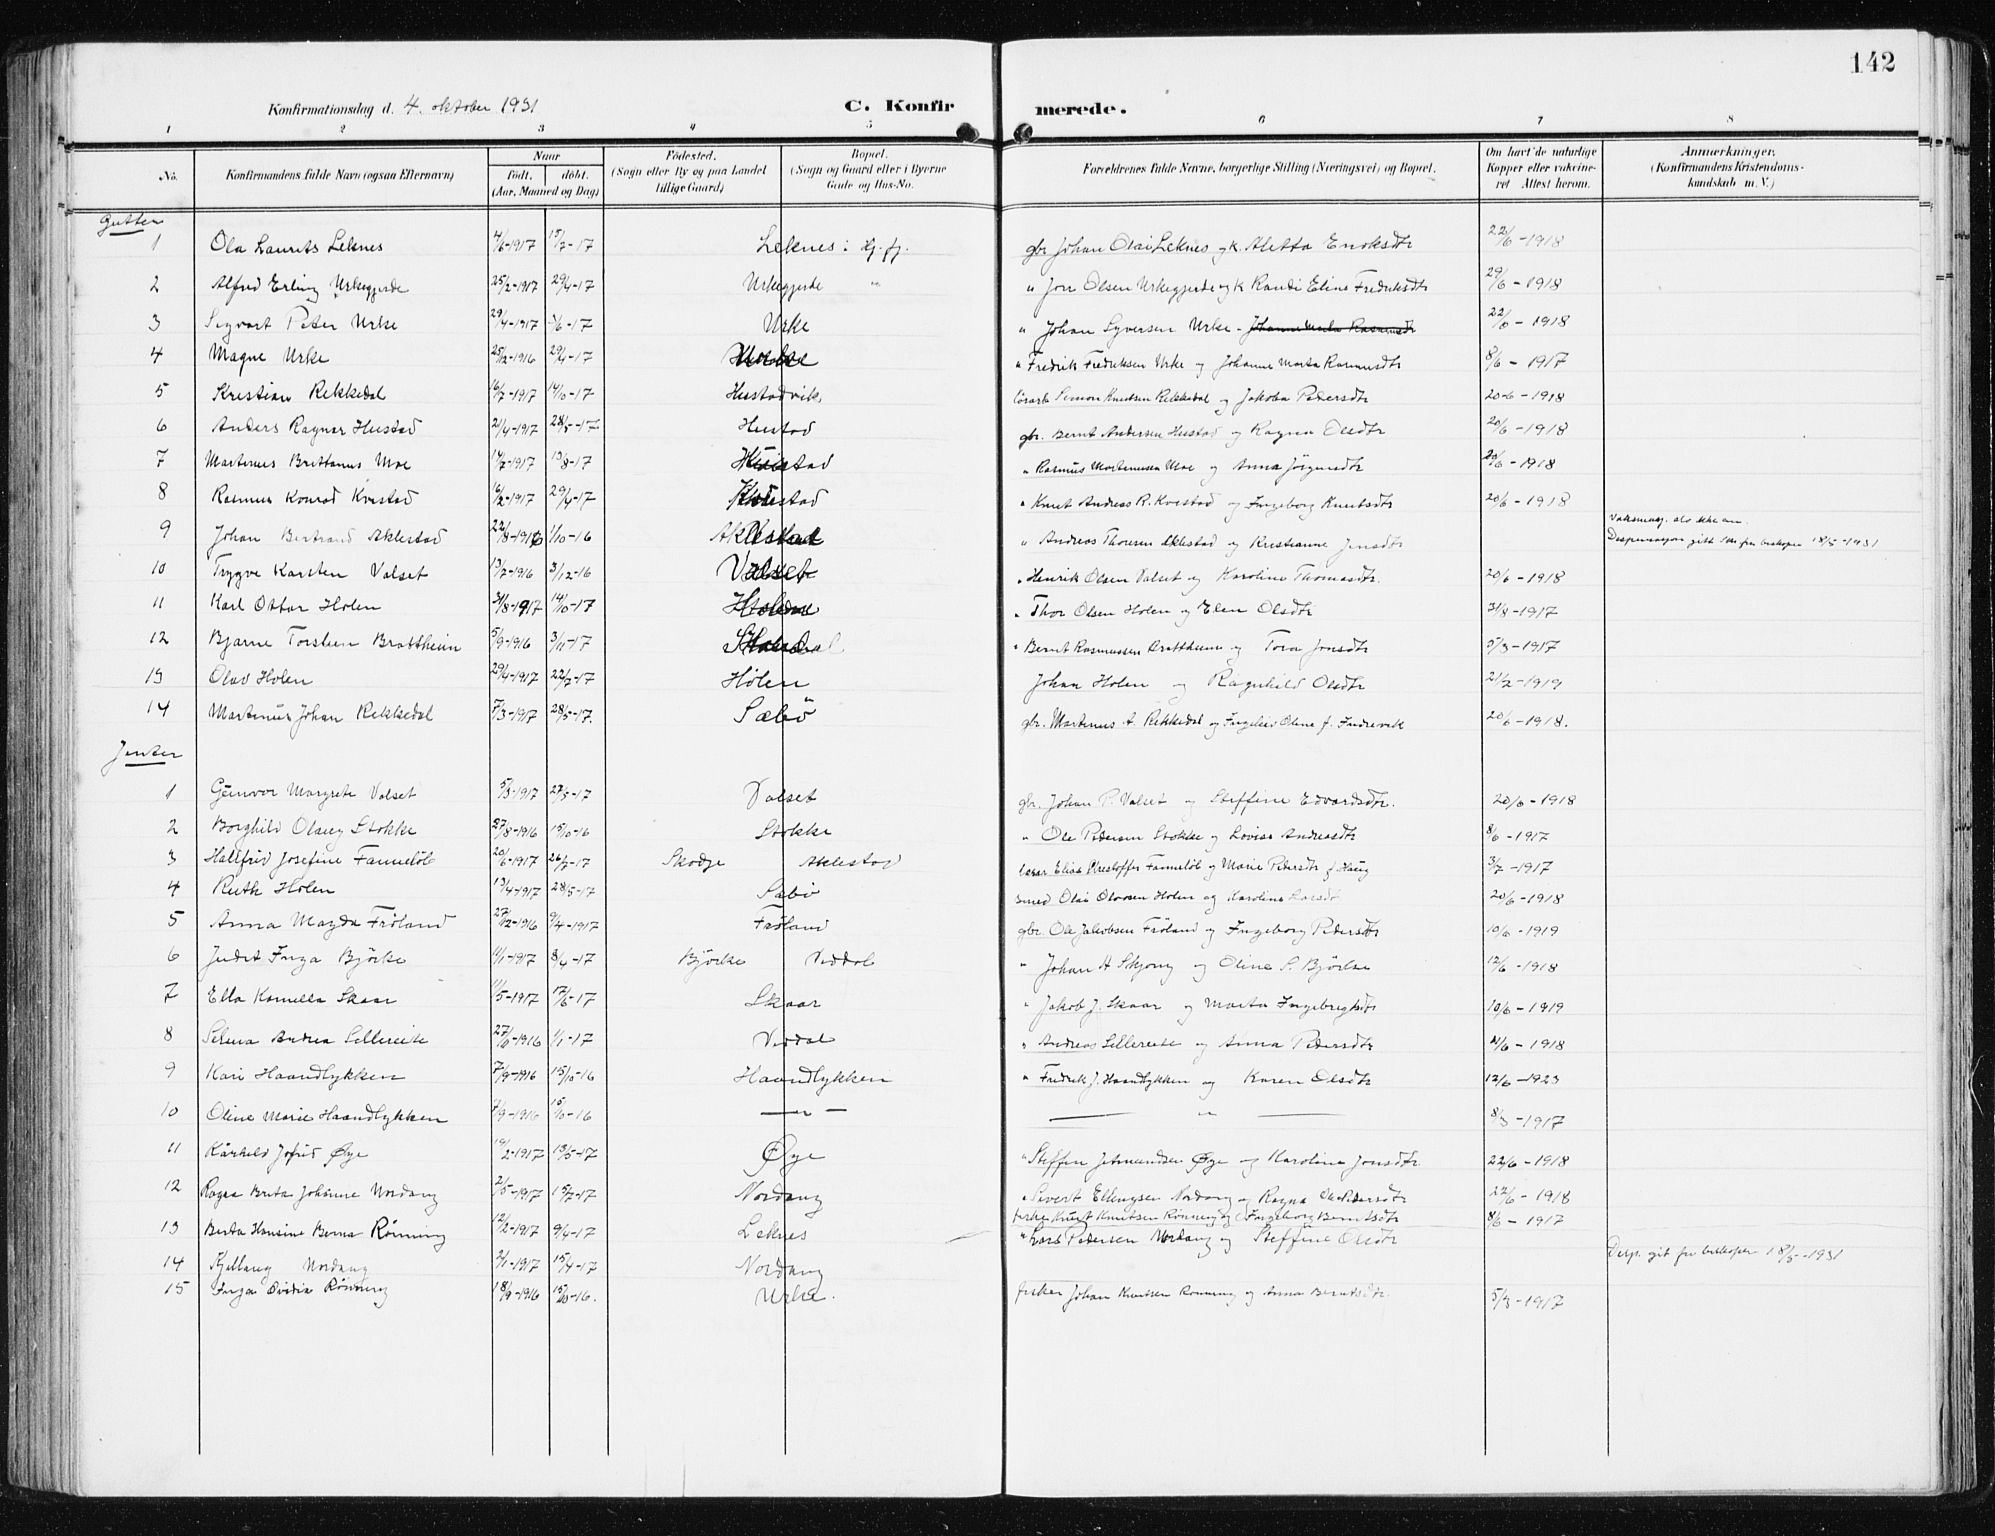 142
Konfirmationsdag d. 4. oktober 1931 C. Konfirmerede.
1 2 3 4 5 6 7 8
No. Konfirmandens fulde Navn (ogsaa Efternavn) Naar født. døbt. (Aar, Maaned og Dag) Fødested. (Sogn eller By og paa Landet tillige Gaard) Bopæl. (Sogn og Gaard eller i Byerne Gade og Hus-No. Forældrenes fulde Navne, borgerlige Stilling (Næringsvei) og Bopæl. Om havt de naturlige Kopper eller vaccineret. Attest herom. Anmærkninger. (Konfirmandens Kristendomskundskab m. V.)
Gutter
1 Ola Laurits Leknes 4/6-1917 15/7-17 Leknes i Hj.fj. gbr Johan Olai Leknes og k. Aletta Eriksdtr 22/6-1918
2 Alfred Erling Urkegjerde 25/2-1917 29/4-17 Urkegjerde " " Jon Olsen Urkegjerde og k Randi Eline Fredriksdtr 29/6-1918
3 Sigvart Peter Urke 29/4-1917 /6-17 Urke " Johan Syversen Urke - 22/6-1918
4 Magne Urke 25/12-1916 29/4-17 Urke " Fredrik Fredriksen Urke og Johanne Marta Rasmusdtr 8/6-1917
5 Kristian Rekkedal 16/7-1917 14/10-17 Hustadvik Simon Knutsen Rekkedal og Jakoba Pedersdtr 20-6-1918
6 Anders Ragnar Hustad 21/4-1917 28/5-17 Hustad gbr. Bernt Andersen Hustad og Ragna Olsdtr 20/6-1918
7 Martenus Brittanus Moe 14/7-1917 19/8-17 Hustad " Rasmus Martenusen Moe og Anna Jörgensdtr 20/6-1918
8 Rasmus Konrad Kvistad 16/2-1917 29/4-17 " Knut Andreas R. Kvistad og Ingeborg Knutsdtr 20/6-1918
9 Johan Bertrand Aklestad 22/8-1916 1/10-16 Aklestad " Andreas Thoresen Aklestad og Kristianne Jensdtr
Dispensasjon gitt fra biskopen 18/5-1931
10 Trygve Karsten Valset 13/7-1916 3/12-16 Valset " Henrik Olsen Valset og Karoline Thomasdtr. 20/6-1918
11 Karl Ottar Holen 31/8-1917 14/10-17 Holen " Thor Olsen Holen og Elen Olsdtr 31/8-1917
12 Bjarne Torstein Brattheim 5/9-1916 3/11-17 " Bernt Rasmussen Brattheim og Tora Jonsdtr 5/3-1917
13 Olav Holen 29/4-1917 22/7-17 Holen Johan Holen og Ragnhild Olsdtr 21/2-1919
14 Martinus Johan Rekkedal 7/3-1917 28/5-17. Sæbö gbr. Martenus A. Rekkedal og Ingeleiv Oline f. Indrevik 20/6-1918.
Jenter
1 Gunvor Margrete Valset 5/3-1917 27/5-17 Valset gbr. Johan P. Valset og Steffine Edvardsdtr. 20/6-1918
2 Borghild Olaug Stokke 27/8-1916 15/10-16 Stokke " Ole Pedersen Stokke og Lovise Andreasdtr 8/6-1917
3 Hallfrid Josefine Fannelöb 20/6-1917 26/7-17 Skodje Aklestad Elias Kristoffer Fannelöb og Marie Pedersdtr f. Haug 3/7-1917
4 Ruth Holen 19/4-1917 28/5-17 Sæbö smed Olai Olavsen Holen og Karoline Larsdtr 20/6-1918
5 Anna Magda Fröland 27/12-1916 9/4-1917 Fröland gbr. Ole Jakobsen Fröland og Ingeborg Pedersdtr 10/6-1919
6 Judit Inga Björke 11/1-1917 8/4-17 Björke Viddal " Johan H Skjong og Oline S. Björke 12/6-1918
7 Ella Kornelia Skaar 11/5-1917 17/6-17 Skaar " Jakob J. Skaar og Marta Ingebregtsdtr 10/6-1919
8 Selma Andrea Sellereite 1916 1/1-17 Viddal " Andreas Sellereite og Anna Pedersdtr /6-1918
9 Kari Haandlykken 7/9-1916 15/10-16 Haandlykken " Fredrik J. Haandlykken og Karen Olsdtr 12/6-1923
10 Oline Marie Haandlykken 7/9-1916 15/10-16 — " — — " — 8/3-1917
11 Kårhild Jofrid Øye 19/2-1917 13/5-17 Øye " Steffen Jetmundsen Øye og Karoline Jonsdtr 22/6-1918
12 Ragna Berta Johanne Nordang 2/5-1917 15/7-17 Nordang " Sivert Ellingsen Nordang og Ragna Pedersdtr 22/6-1918
13 Berta Hansine Berna Rönning 12/2-1917 9/4-17 Leknes fisker Knut Knutsen Rönning og Ingeborg Berntsdtr 8/6-1917
14 Kjellaug Nordang 2/1-1917 15/4-17 Nordang " Lars Pedersen Nordang og Steffine Olsdtr
Disp. git fra biskopen 18/5-1931
15 Inga Ovidia Rönning 18/9-1916 15/10-16. Urke. fisker Johan Knutsen Rönning og Anna Berntsdtr. 5/3-1917